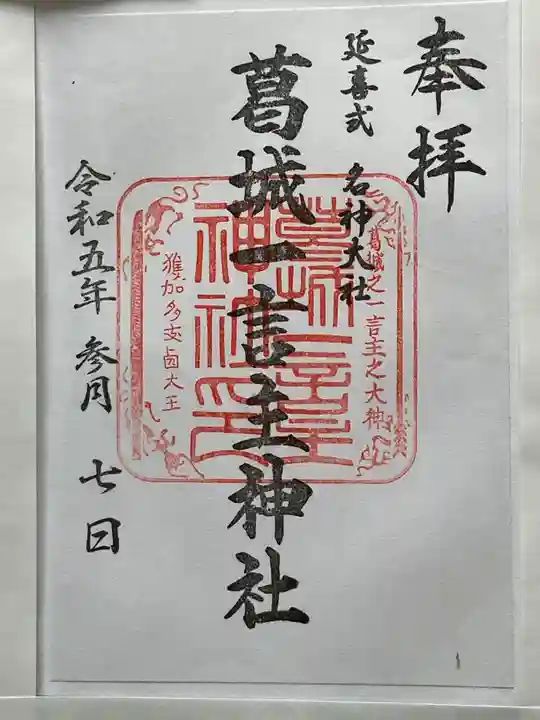 奉拝
延喜式 名神大社
葛城一言主神社
令和五年 参月 七日
葛城之一言主之大神
葛城一言主
神社印
獲加多支鹵大王